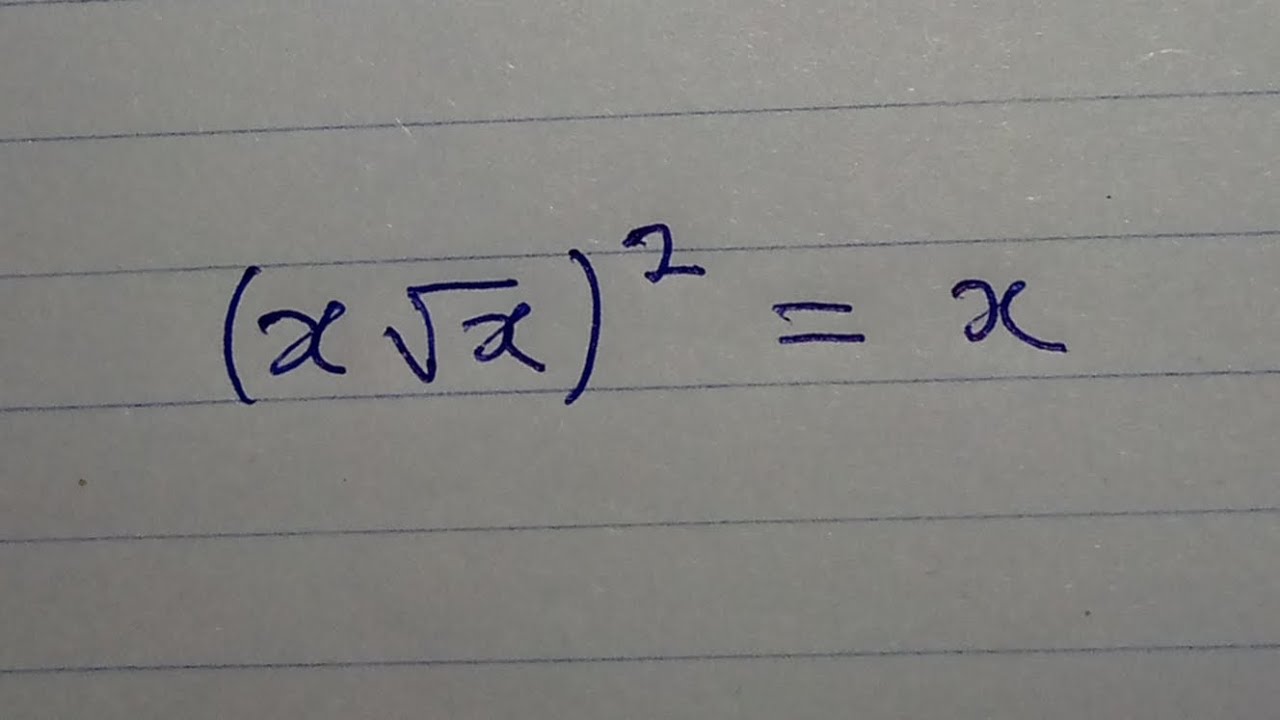 (x√x)² = x